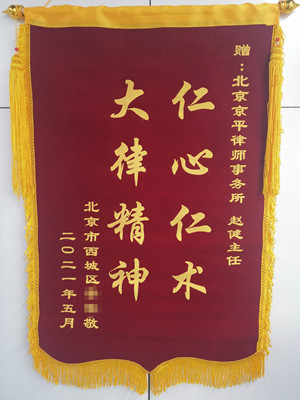 赠：北京京平律师事务所 赵健主任
仁心仁术
大律精神
北京市西城区 敬
二〇二一年五月